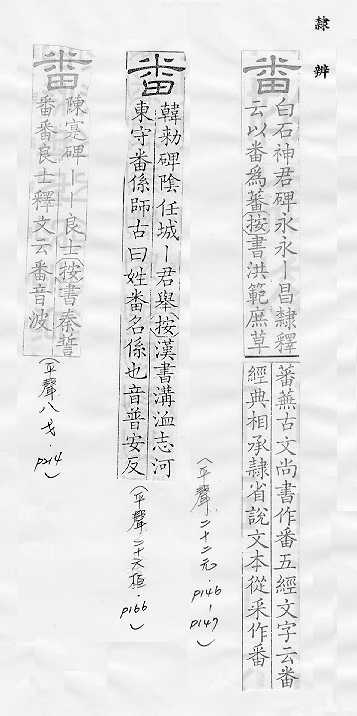 隸辨
番
白石神君碑永永丨昌隸釋
云以番為蕃按書洪範庶草
蕃蕪古文尚書作番五經文字云番
經典相承隸省說文本從釆作番
(平聲二十二元．p146-p147)
番
韓勑碑陰任城丨君舉按漢書溝洫志河
東守番係師古曰姓番名係也音普安反
(平聲二十六桓．p166)
番
陳寔碑丨丨良士按書秦誓
番番良士釋文云番音波
(平聲八戈．p214)